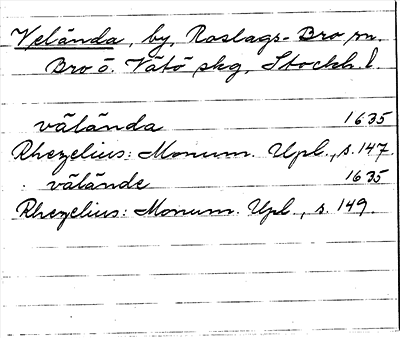 Velända, by, Roslags-Bro sn.
Bro o. Vätö skg, Stockh. l.
välända 1635
Rhezelius: Monum. Upl., s. 147.
välände 1635
Rhezelius: Monum. Upl., s. 149.